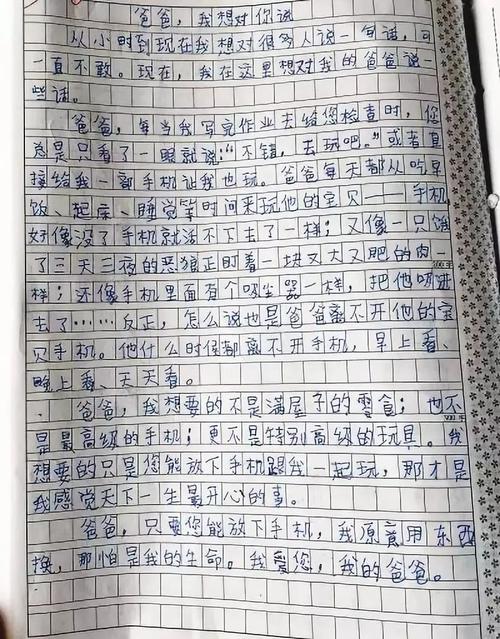 爸爸，我想对你说
从小时到现在我想对很多人说一句话，可
一直不敢。现在，我在这里想对我的爸爸说一
些话。
爸爸，每当我写完作业去给您检查时，您
总是只看了一眼就说：“不错，去玩吧。”或者直
接给我一部手机让我也玩。爸爸每天都从吃早
饭、起床、睡觉等时间来玩他的宝贝——手机
好像没了手机就活不下去了一样；又像一只饿
了三天三夜的恶狼正盯着一块又大又肥的肉一
样；还像手机里面有个吸尘器一样，把他吸进
去了……反正，怎么说也是爸爸离不开他的宝
贝手机。他什么时候都离不开手机，早上看、
晚上看、天天看。
爸爸，我想要的不是满屋子的零食；也不
是最高级的手机；更不是特别高级的玩具。我
想要的只是您能放下手机跟我一起玩，那才是
我感觉天下一生最开心的事。
爸爸，只要您能放下手机，我原意用东西
换，那怕是我的生命。我爱您，我的爸爸。